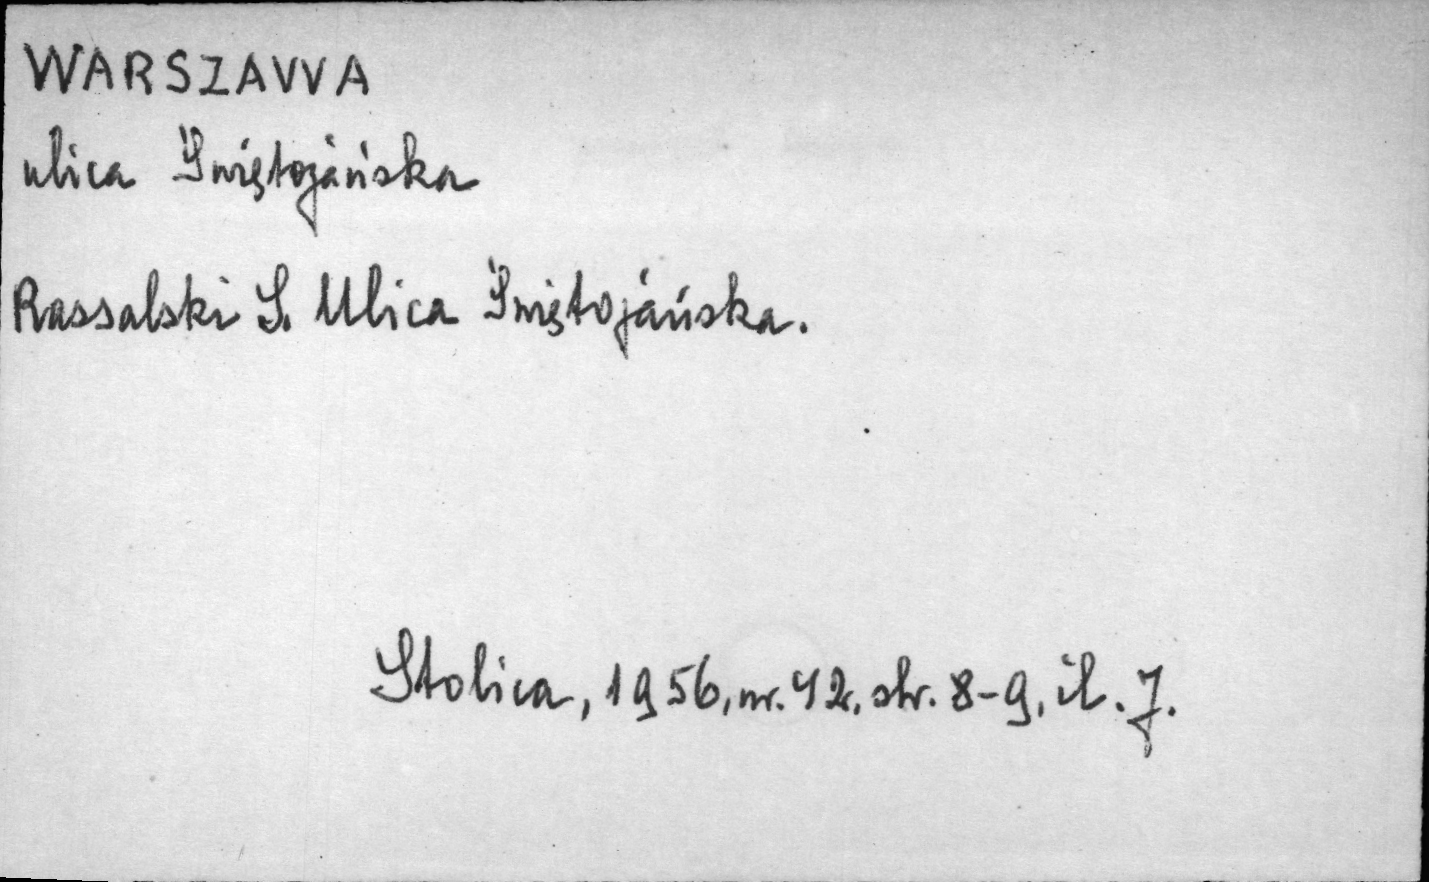 WARSZAWA
ulica Świętojańska
Rassalski S. Ulica Świętojańska.
Stolica, 1956, nr. 42, str. 8-9, il. 7.